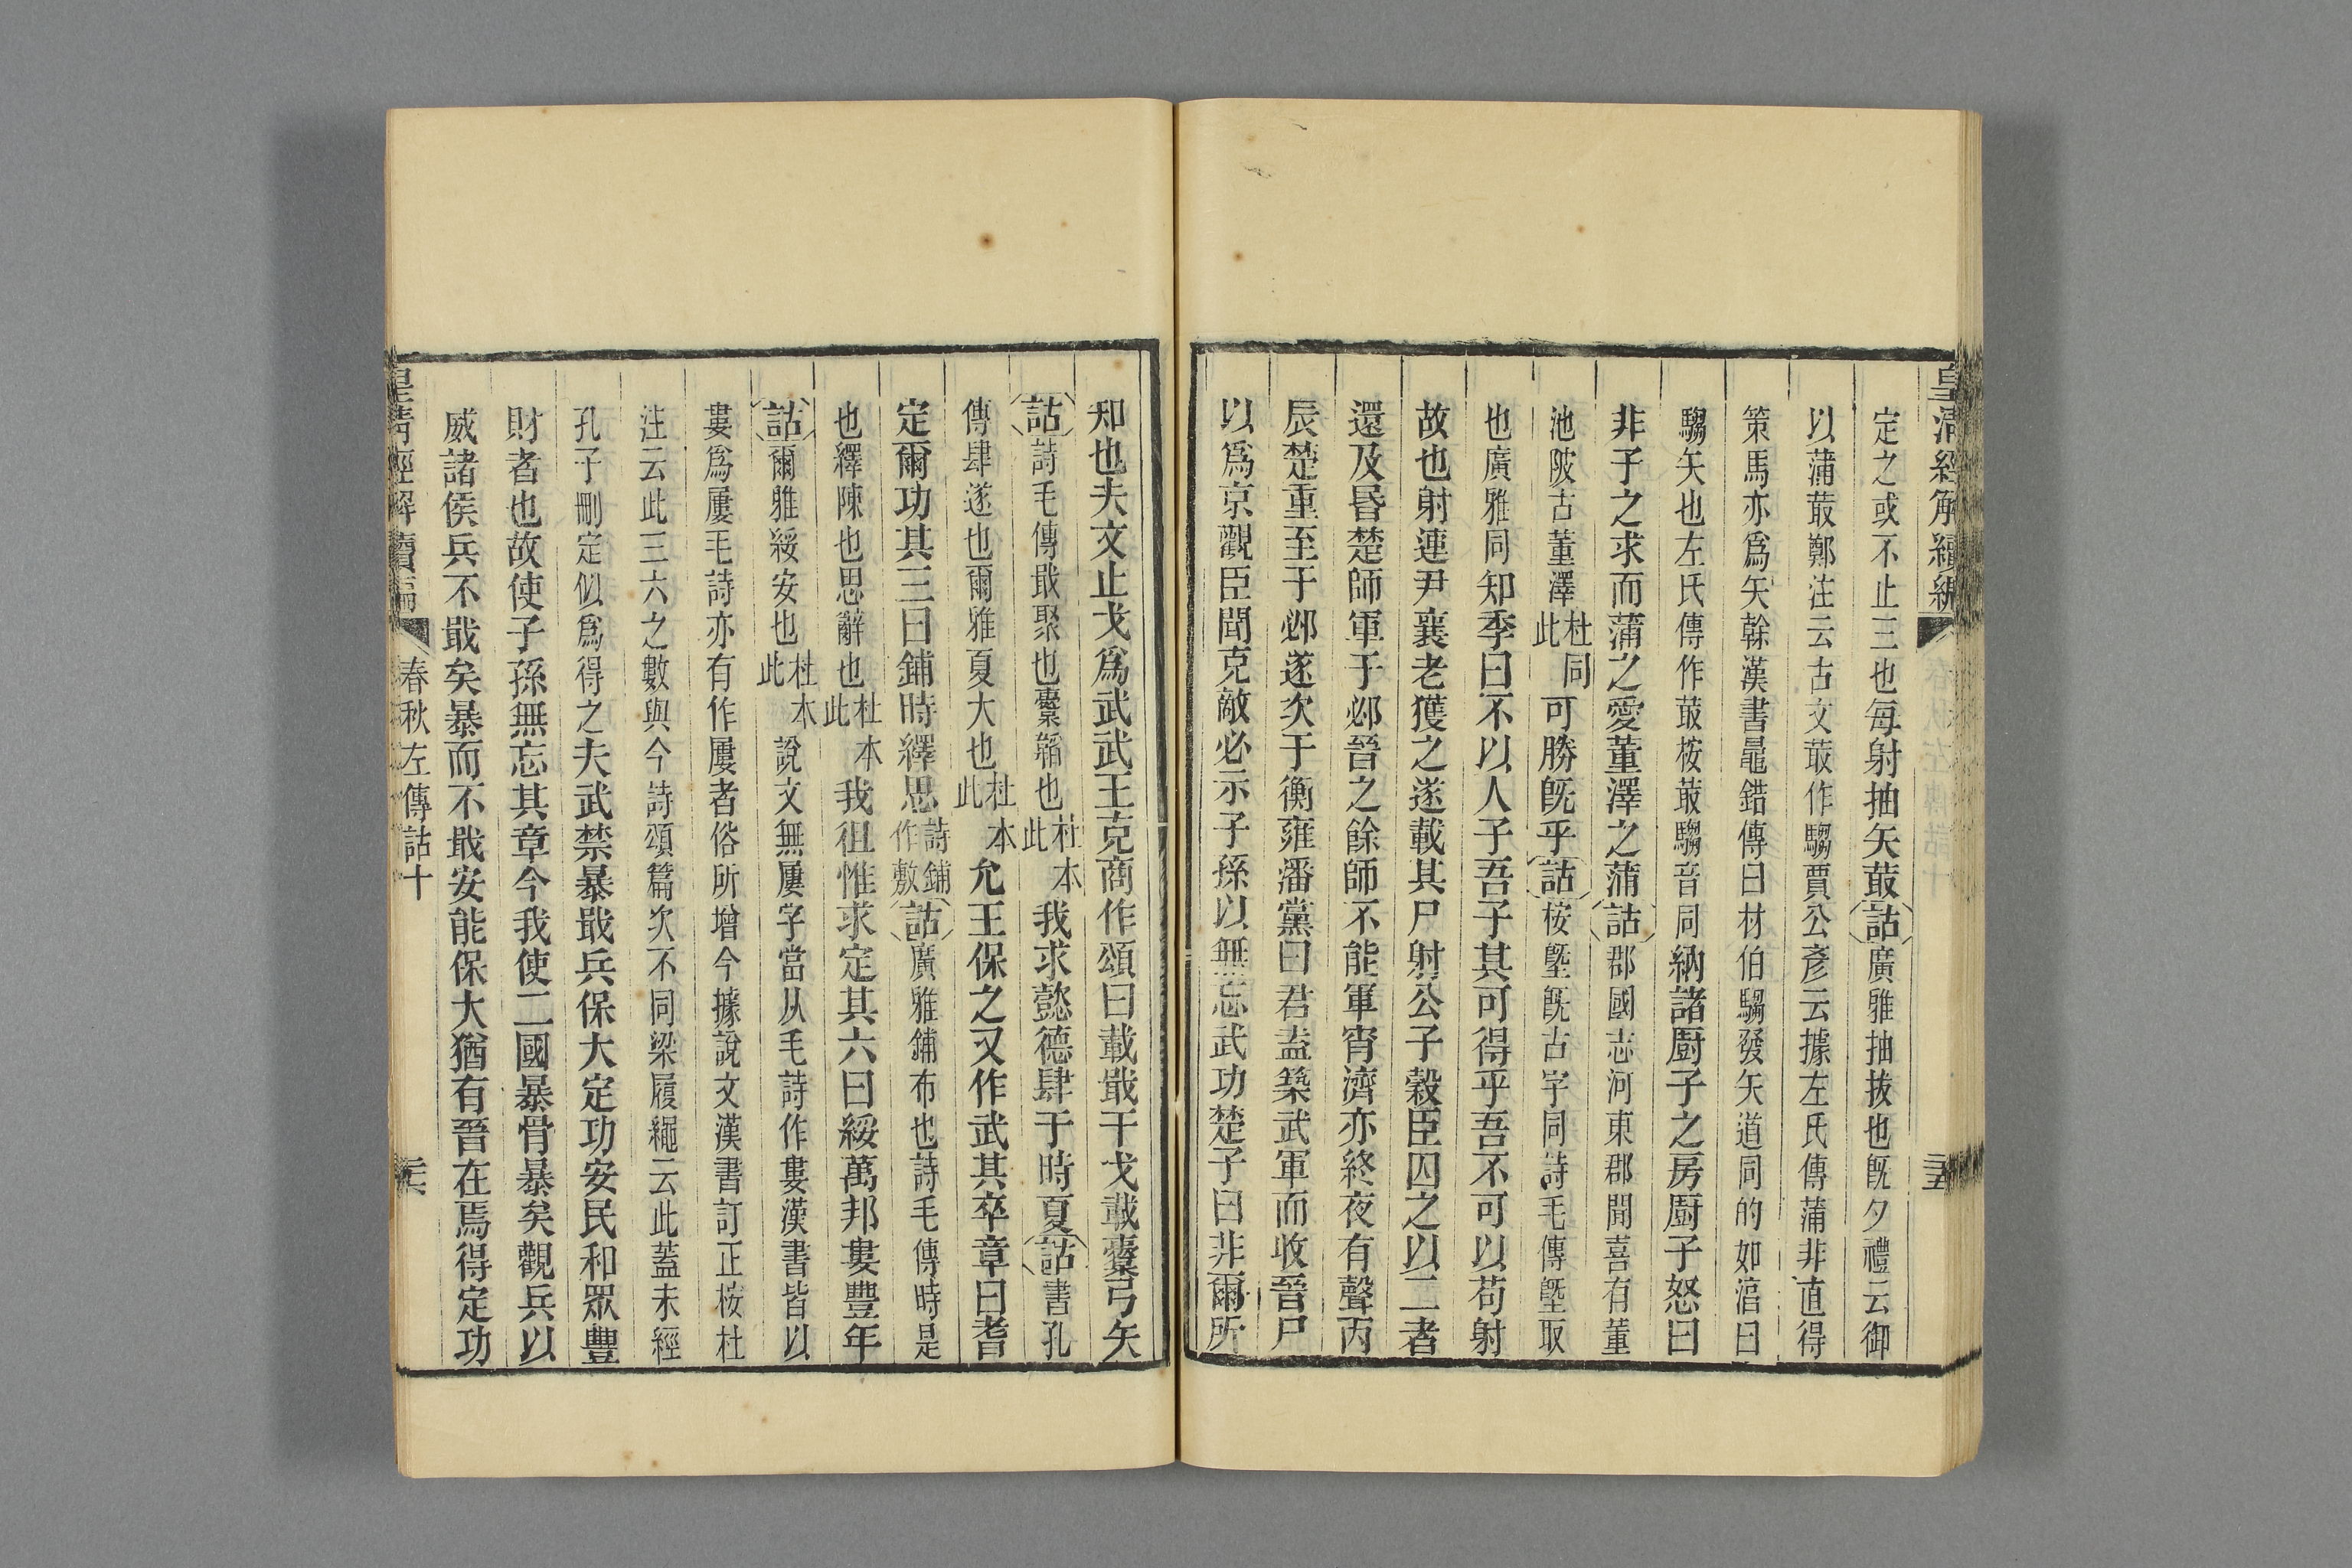 皇清經解續編
定之或不止三也每射抽矢菆詁廣雅抽拔也旣夕禮云御
以蒲菆鄭注云古文菆作騶賈公彥云據左氏傳蒲非直得
策馬亦爲矢榦漢書鼂錯傳曰材伯騶發矢道同的如湻曰
騶矢也左氏傳作菆桉菆騶音同納諸廚子之房廚子怒曰
非子之求而蒲之愛董澤之蒲詁郡國志河東郡聞喜有董
池陂古董澤杜同此可勝旣乎詁桉墍旣古字同詩毛傳墍取
也廣雅同知季曰不以人子吾子其可得乎吾不可以苟射
故也射連尹襄老獲之遂載其尸射公子榖臣囚之以二者
還及昬楚師軍于邲晉之餘師不能軍宵濟亦終夜有聲丙
辰楚重至于邲遂次于衡雍潘黨曰君盍築武軍而收晉尸
以爲京觀臣聞克敵必示子孫以無忘武功楚子曰非爾所
知也夫文止戈爲武武王克商作頌曰載戢干戈載櫜弓矢
詁詩毛傳戢聚也櫜韜也杜本此我求懿德肆于時夏詁書孔
傳肆遂也爾雅夏大也杜本此允王保之又作武其卒章曰耆
定爾功其三曰鋪時繹思詩鋪作敷詁廣雅鋪布也詩毛傳時是
也繹陳也思辭也杜本此我徂惟求定其六曰綏萬邦婁豐年
詁爾雅綏安也杜本此說文無屢字當从毛詩作婁漢書皆以
婁爲屢毛詩亦有作屢者俗所增今據說文漢書訂正桉杜
注云此三六之數與今詩頌篇次不同梁履繩云此蓋未經
孔子刪定似爲得之夫武禁暴戢兵保大定功安民和眾豐
財者也故使子孫無忘其章今我使二國暴骨暴矣觀兵以
威諸侯兵不戢矣暴而不戢安能保大猶有晉在焉得定功
皇清經解續編
春秋左傳詁十